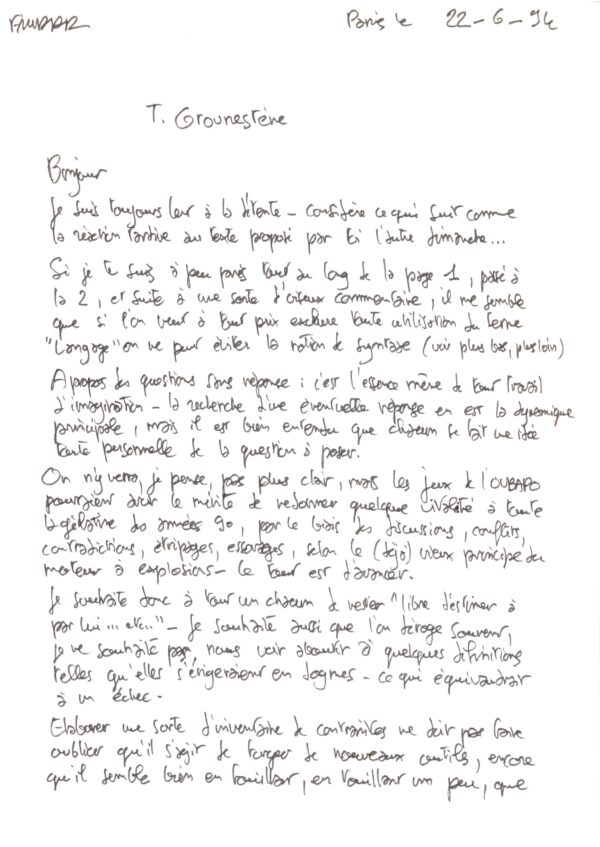 Paris le 22-6-94
T. Grounestène
Bonjour
Je suis toujours lent à la détente – considère ce qui suit comme
la réaction tardive au texte proposé par toi l'autre dimanche...
Si je te suis à peu près tout au long de la page 1, passé à
la 2, et suite à une sorte d'oiseux commentaire, il me semble
que si l'on veut à tout prix exclure toute utilisation du terme
"langage" on ne peut éviter la notion de syntaxe (voir plus bas, plus loin)
A propos des questions sans réponse : c'est l'essence même de tout travail
d'imagination – la recherche d'une éventuelle réponse en est la dynamique
principale, mais il est bien entendu que chacun se fait une idée
toute personnelle de la question à poser.
On n'y verra, je pense, pas plus clair, mais les jeux de l'OUBAPO
pourraient avoir le mérite de redonner quelque vivalité à toute
la gélative des années 90, par le biais des discussions, conflits,
contradictions, étripages, essorages, selon le (déjà) vieux principe du
moteur à explosions – le tout est d'avancer.
Je souhaite donc à tout un chacun de rester "libre d'estimer à
par lui ... etc.." – Je souhaite aussi que l'on déroge souvent,
je ne souhaite pas nous voir aboutir à quelques définitions
telles qu'elles s'érigeraient en dogmes – ce qui équivaudrait
à un échec –
Elaborer une sorte d'inventaire de contraintes ne doit pas faire
oublier qu'il s'agit de forger de nouveaux outils, encore
qu'il semble bien en fouillant, en fouillant un peu, que